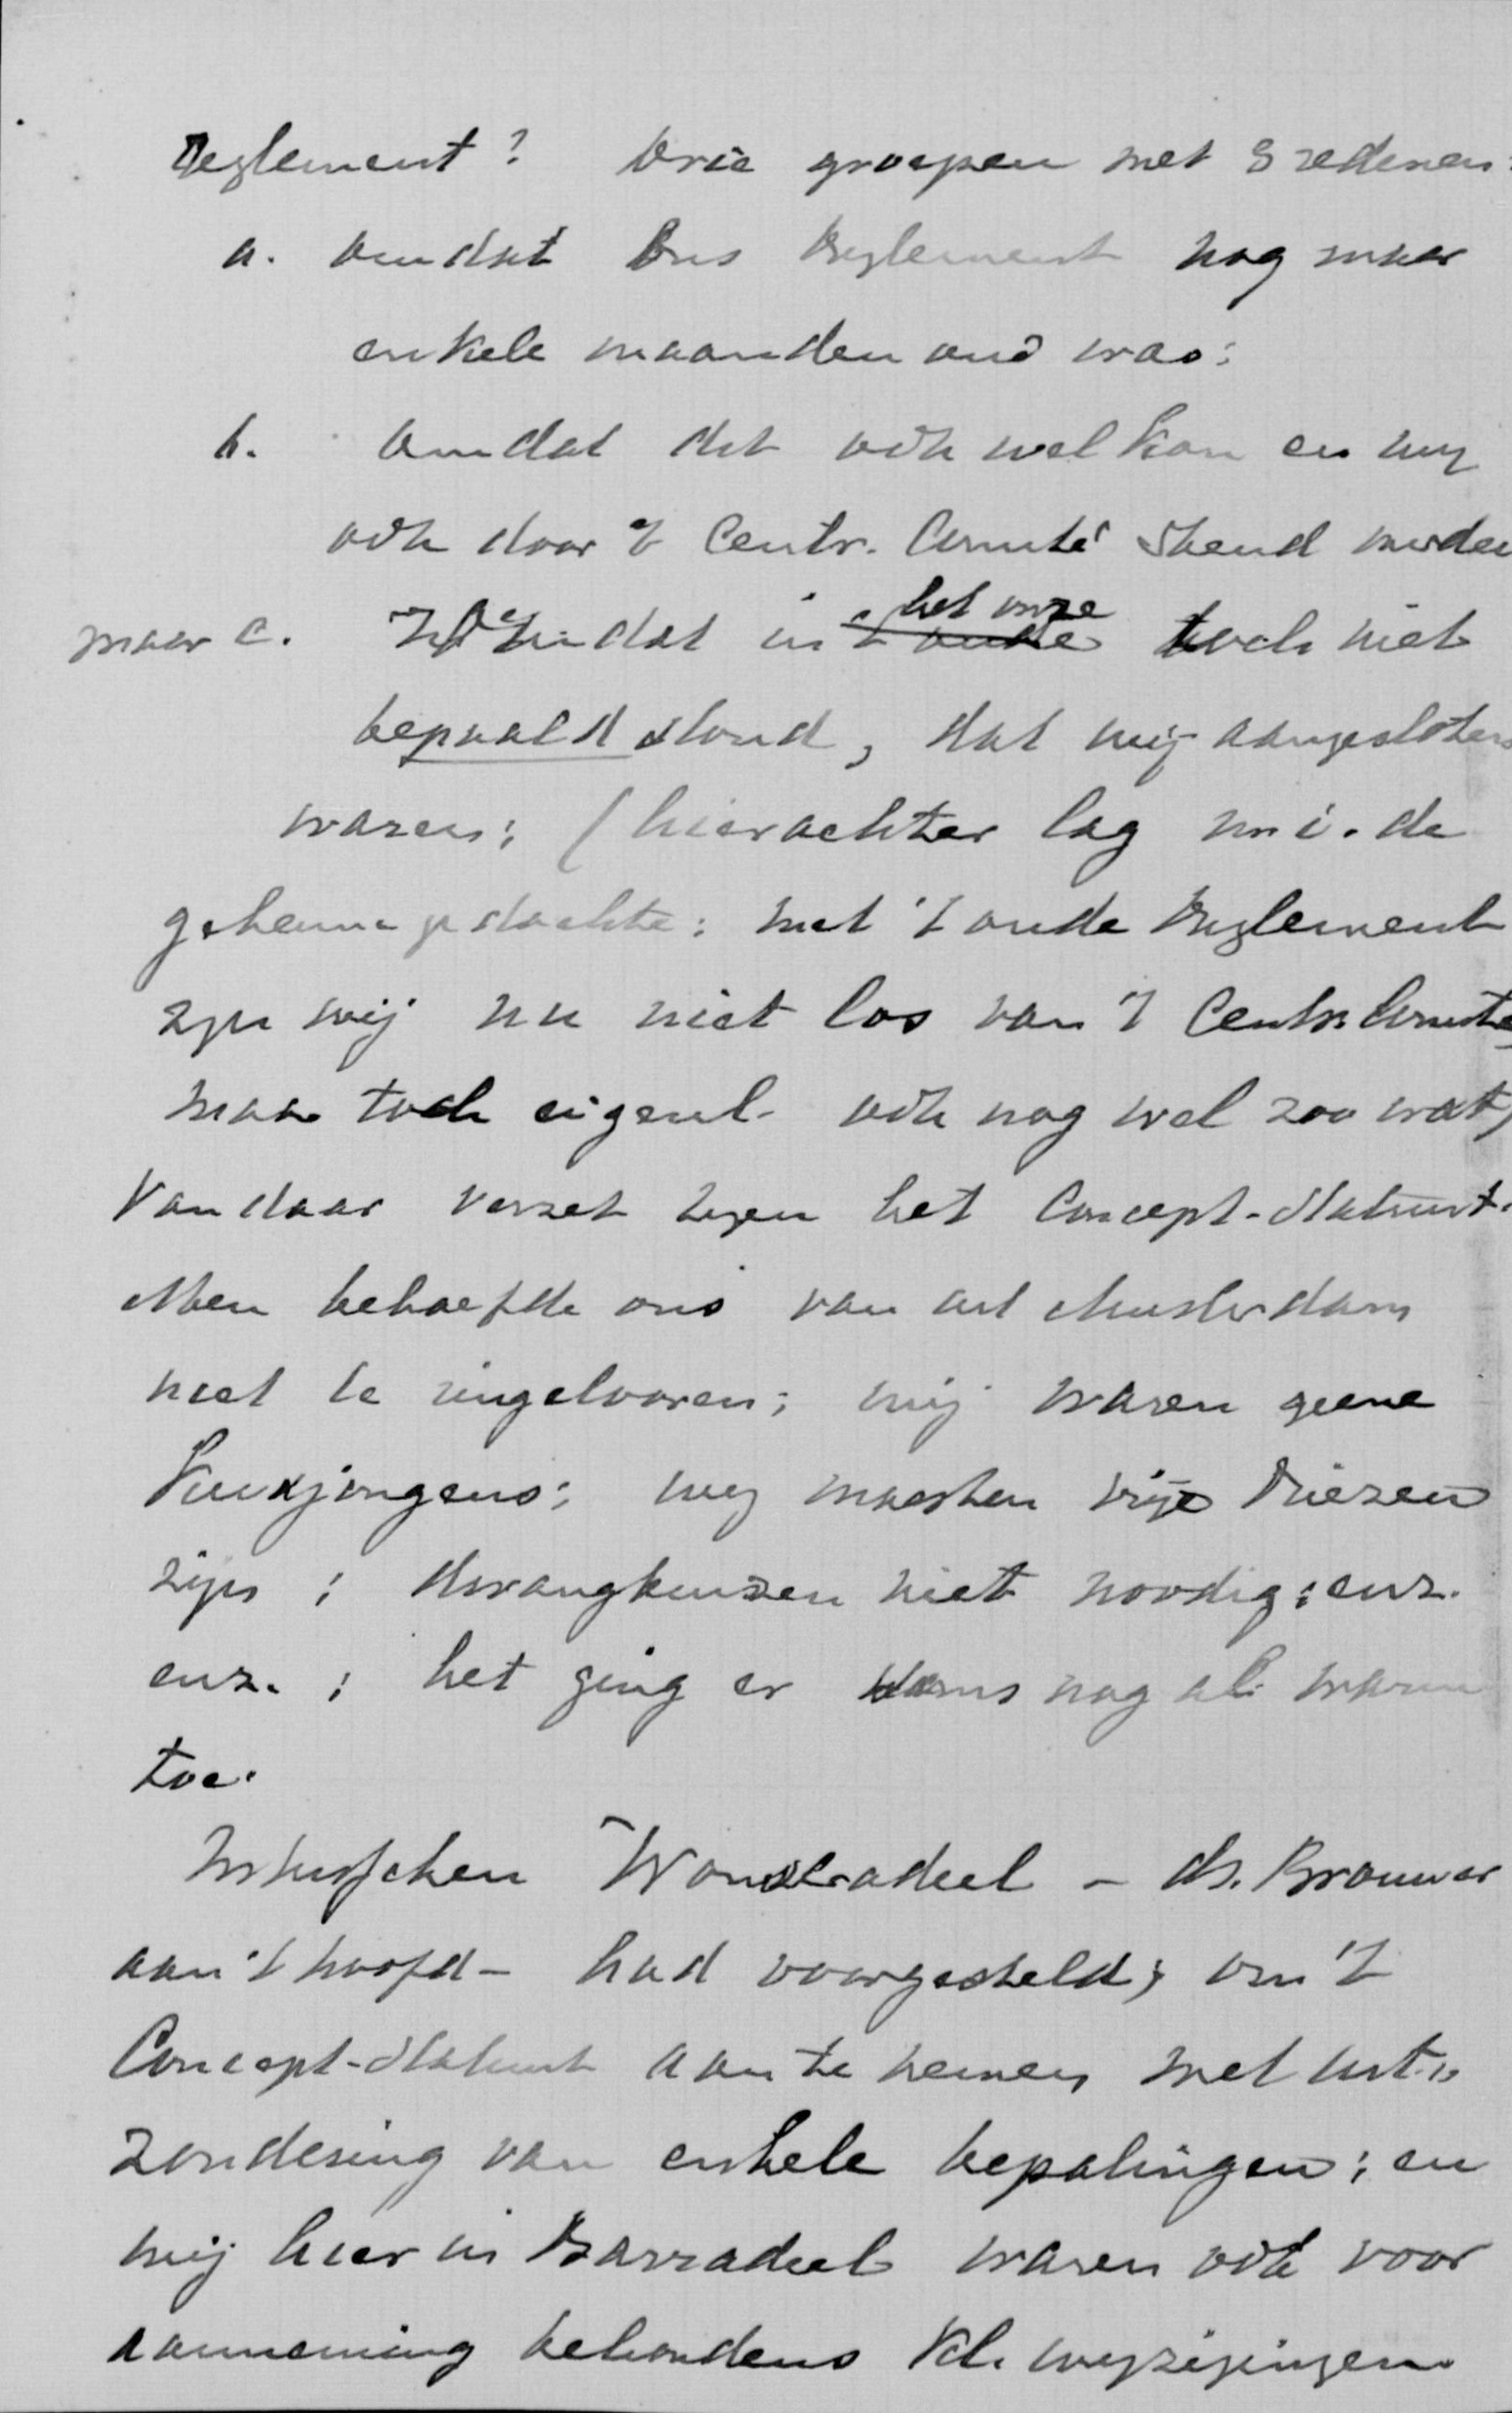 Reglement? Drie groepen met 3 redenen:
a. omdat Ons Reglement nog maar
enkele maanden oud was;
b. omdat dat ook wel kon en wij
ook door 't Centr. Comité erkend werden
maar c. omdat in 't oude het onze toch niet
bepaald stond, dat wij aangesloten
waren; (hierachter lag m.i. de
geheime gedachte: met 't oude Reglement
zijn wij nu niet los van 't Centr. Comité,
maar toch eigenl. ook nog wel zoo wat)
Vandaar verzet tegen het Concept-Statuut.
Men behoefde ons van uit Amsterdam
niet te ringelooren; wij waren geene
kwajongens; wij moesten vrije Friezen
zijn; dwangbuizen niet noodig; enz.
enz.; het ging er soms nog al warm
toe.
Intusschen Wonseradeel - ds. Brouwer
aan 't hoofd - had voorgesteld, om 't
Concept-Statuut aan te nemen met uit-
zondering van enkele bepalingen; en
wij hier in Barradeel waren ook voor
aanneming behoudens kl. wijzigingen.